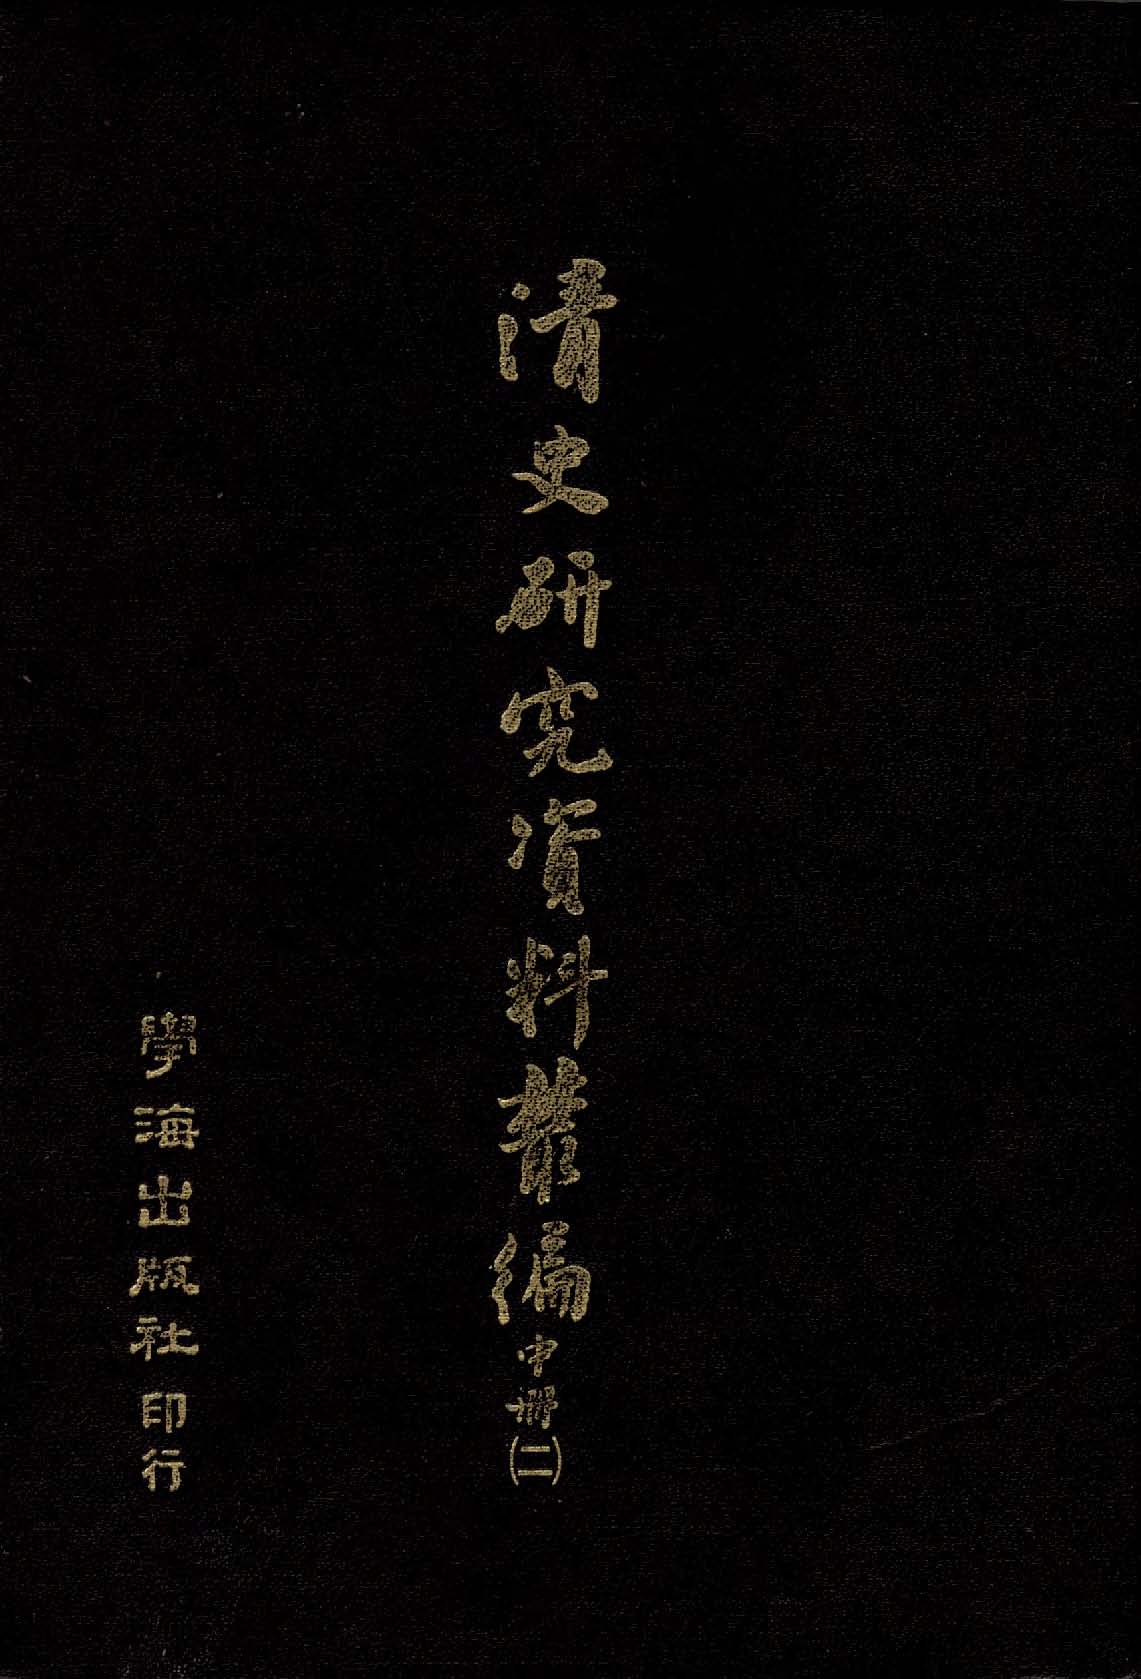 清史研究資料叢編中冊(二)
學海出版社印行